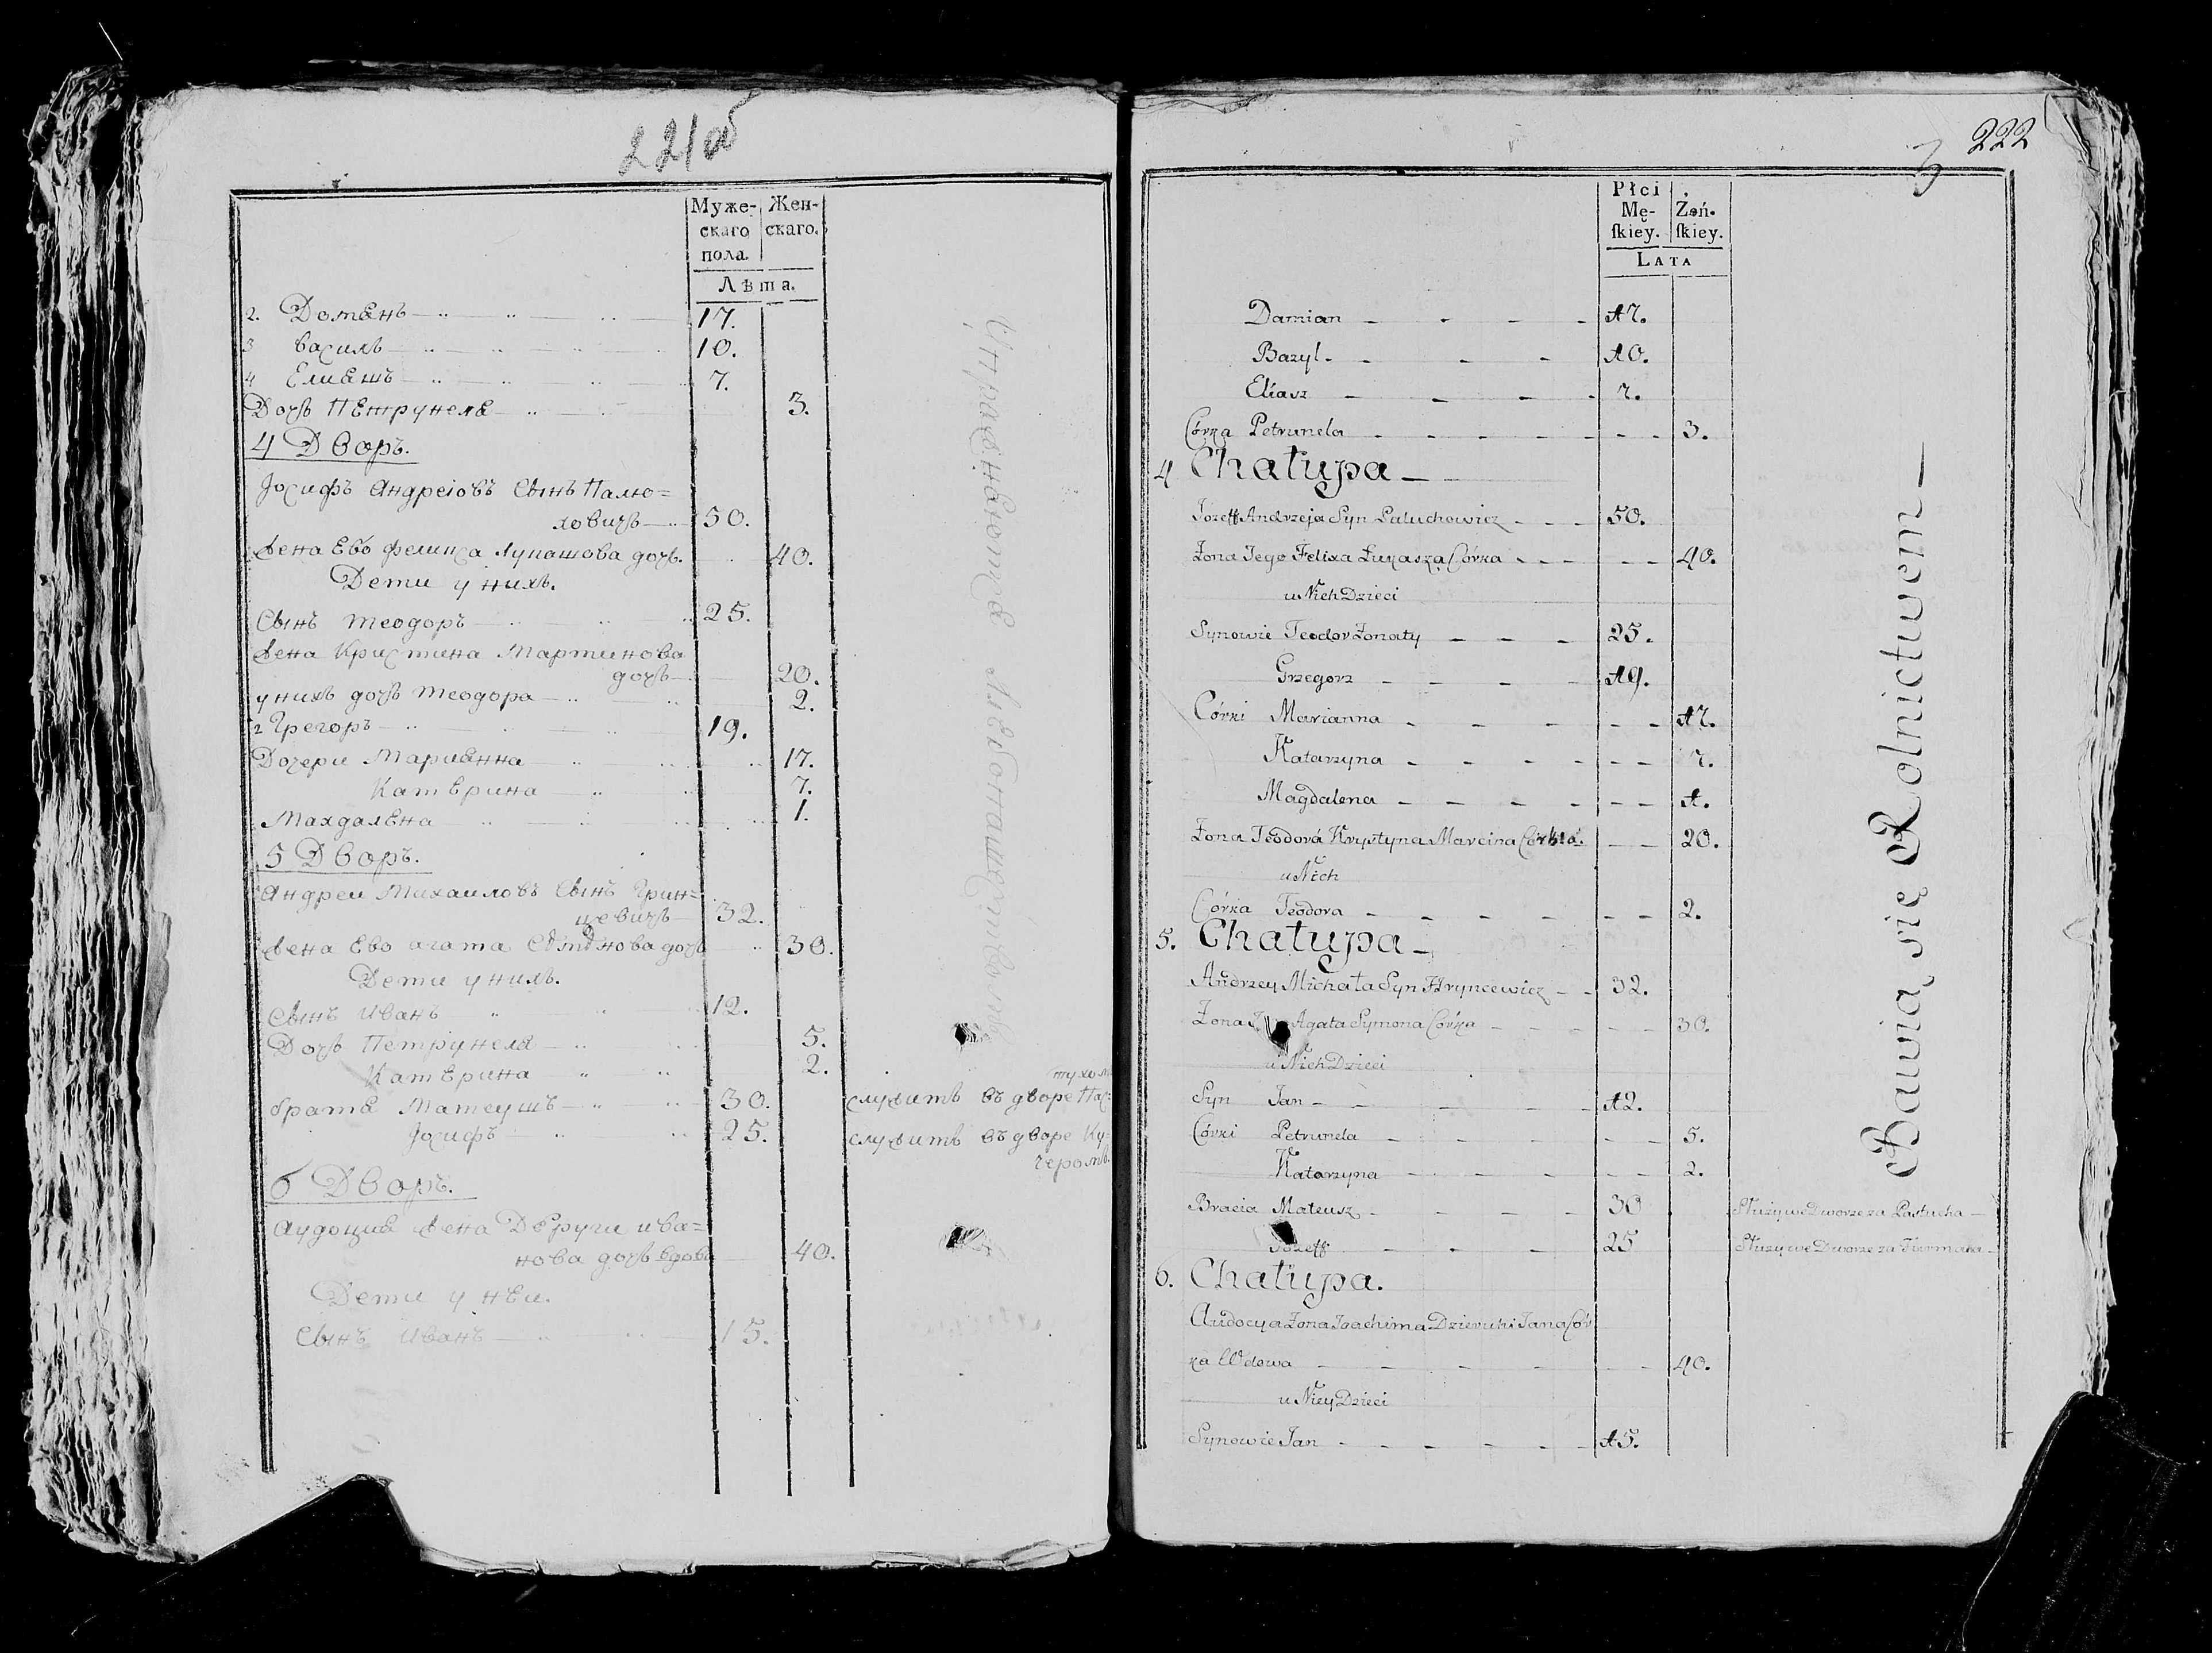 221об
Муже-
скаго
пола.
Жен-
скаго.
Лѣта.
2. Домянъ 17.
3 василь 10.
4 Елияшъ 7.
Дочь Петрунеля 3.
4 Дворъ.
Іосифъ Андреіовъ Сынъ Палю=
ховичь 50.
Жена Ево фелиц̃а Лукашова дочь. 40.
Дети у нихъ.
Сынъ теодоръ 25.
Жена Кристина Мартинова
дочь 20.
у нихъ дочь теодора 2.
2 Грегоръ 19.
Дочери Марианна 17.
Катерина 7.
Махдалена 1.
5 Дворъ.
Андреи Михаиловъ Сынъ Грин=
цевичь 32.
Жена Ево агата дочь 30.
Дети у нихъ.
Сынъ Иванъ 12.
Дочь Петрунеля 5.
Катерина 2.
братя Матеушъ 30. служитъ въ дворе Пас=
тухомъ
Іосифъ 25. служитъ въ дворе Ку=
черомъ.
6 Дворъ.
Аудоция жена Деруги ива=
нова дочь вдова 40.
Дети у неи.
Сынъ Иванъ 15.
222
3
Płci
Mę-
ſkiey.
Żeń-
ſkiey.
LATA
Damian 17.
Bazyl 10.
Eliasz 7.
Córka Petrunela 3.
4 Chałupa
Jozeff Andrzeja Syn Paluchowicz 50.
Żona Jego Felixa Łukasza Córka 40.
u Nich Dzieci
Synowie Teodor Żonaty 25.
Grzegorz 19.
Córki Marianna 17.
Katarzyna 7.
Magdalena 1.
Żona Teodora Krystyna Marcina Córka. 20.
u Nich
Córka Teodora 2.
5. Chałupa
Andrzey Michała Syn Hryncewicz 32.
Żona Agata Symona Córka 30.
u Nich Dzieci
Syn Jan 12.
Córki Petrunela 5.
Katarzyna 2.
Bracia Mateusz 30 Służy we Dworze za Pastucha
Jozeff 25 Służy we Dworze za Furmana
6. Chałupa.
Audocya Żona Joachima Dzieruhi Jana Cór
ka Wdowa 40.
u Niey Dzieci
Synowie Jan 15.
Bawią się Rolnictwem